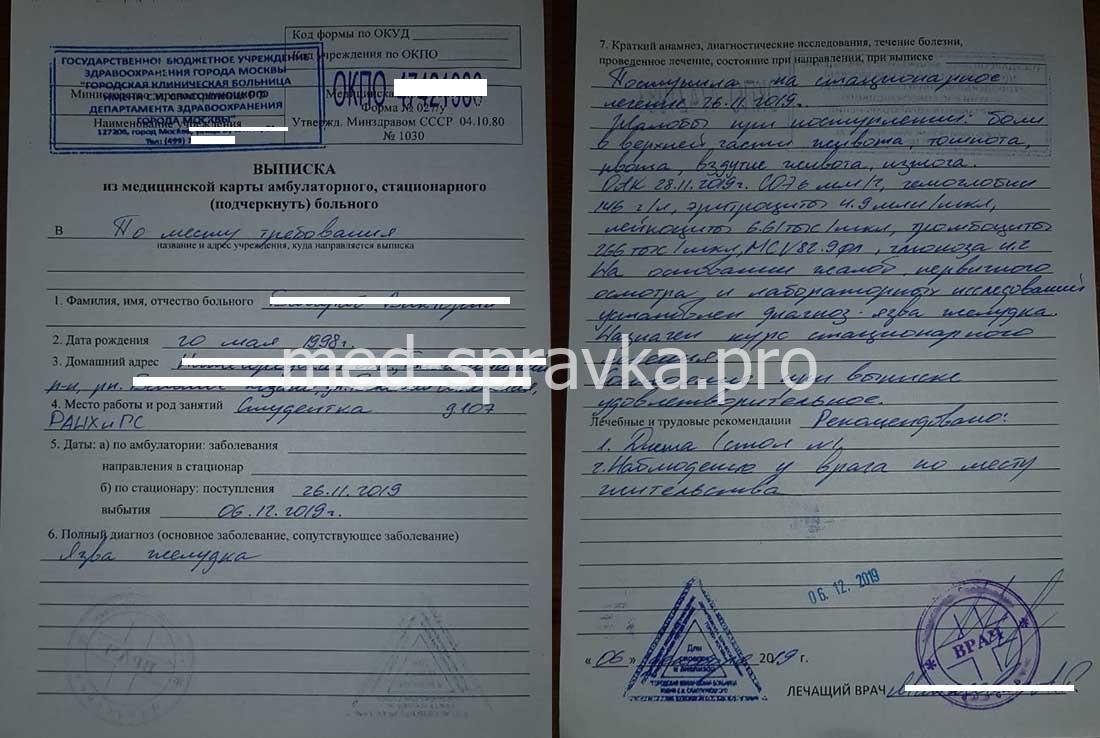 Код формы по ОКУД
Код учреждения по ОКПО
ГОСУДАРСТВЕННОЕ БЮДЖЕТНОЕ УЧРЕЖДЕНИЕ
ЗДРАВООХРАНЕНИЯ ГОРОДА МОСКВЫ
"ГОРОДСКАЯ КЛИНИЧЕСКАЯ БОЛЬНИЦА
ДЕПАРТАМЕНТА ЗДРАВООХРАНЕНИЯ
ГОРОДА МОСКВЫ"
127206, город Москва,
Тел: (499)
ОКПО
Наименование учреждения
Медицинская
Форма № 027/у
Утвержд. Минздравом СССР 04.10.80
№ 1030
ВЫПИСКА
из медицинской карты амбулаторного, стационарного
(подчеркнуть) больного
В По месту требования
название и адрес учреждения, куда направляется выписка
1. Фамилия, имя, отчество больного
2. Дата рождения 20 мая 1998г.
3. Домашний адрес
р-н, рп.
4. Место работы и род занятий Студентка
РАНХиГС
5. Даты: а) по амбулатории: заболевания
направления в стационар
б) по стационару: поступления 26.11.2019
выбытия 06.12.2019г.
6. Полный диагноз (основное заболевание, сопутствующее заболевание)
Язва желудка
7. Краткий анамнез, диагностические исследования, течение болезни,
проведенное лечение, состояние при направлении, при выписке
Поступила на стационарное
лечение 26.11.2019г.
Жалобы при поступлении: боли
в верхней части живота, тошнота,
рвота, вздутие живота, изжога.
ОАК 28.11.2019г. СОЭ 6 мм/ч, гемоглобин
146 г/л, эритроциты 4.9 млн/мкл,
лейкоциты 6.61 тыс/мкл, тромбоциты
266 тыс/мкл, MCV 82.9 фл, глюкоза 4.2
На основании жалоб, первичного
осмотра и лабораторных исследований
установлен диагноз: язва желудка.
Назначен курс стационарного
лечения.
при выписке
удовлетворительное.
Лечебные и трудовые рекомендации Рекомендовано:
1. Диета (стол №1)
2. Наблюдение у врача по месту
жительства
med-spravka.pro
06. 12. 2019
Для
справок
и выписок
ВРАЧ
« 06 » декабря 2019 г.
ЛЕЧАЩИЙ ВРАЧ